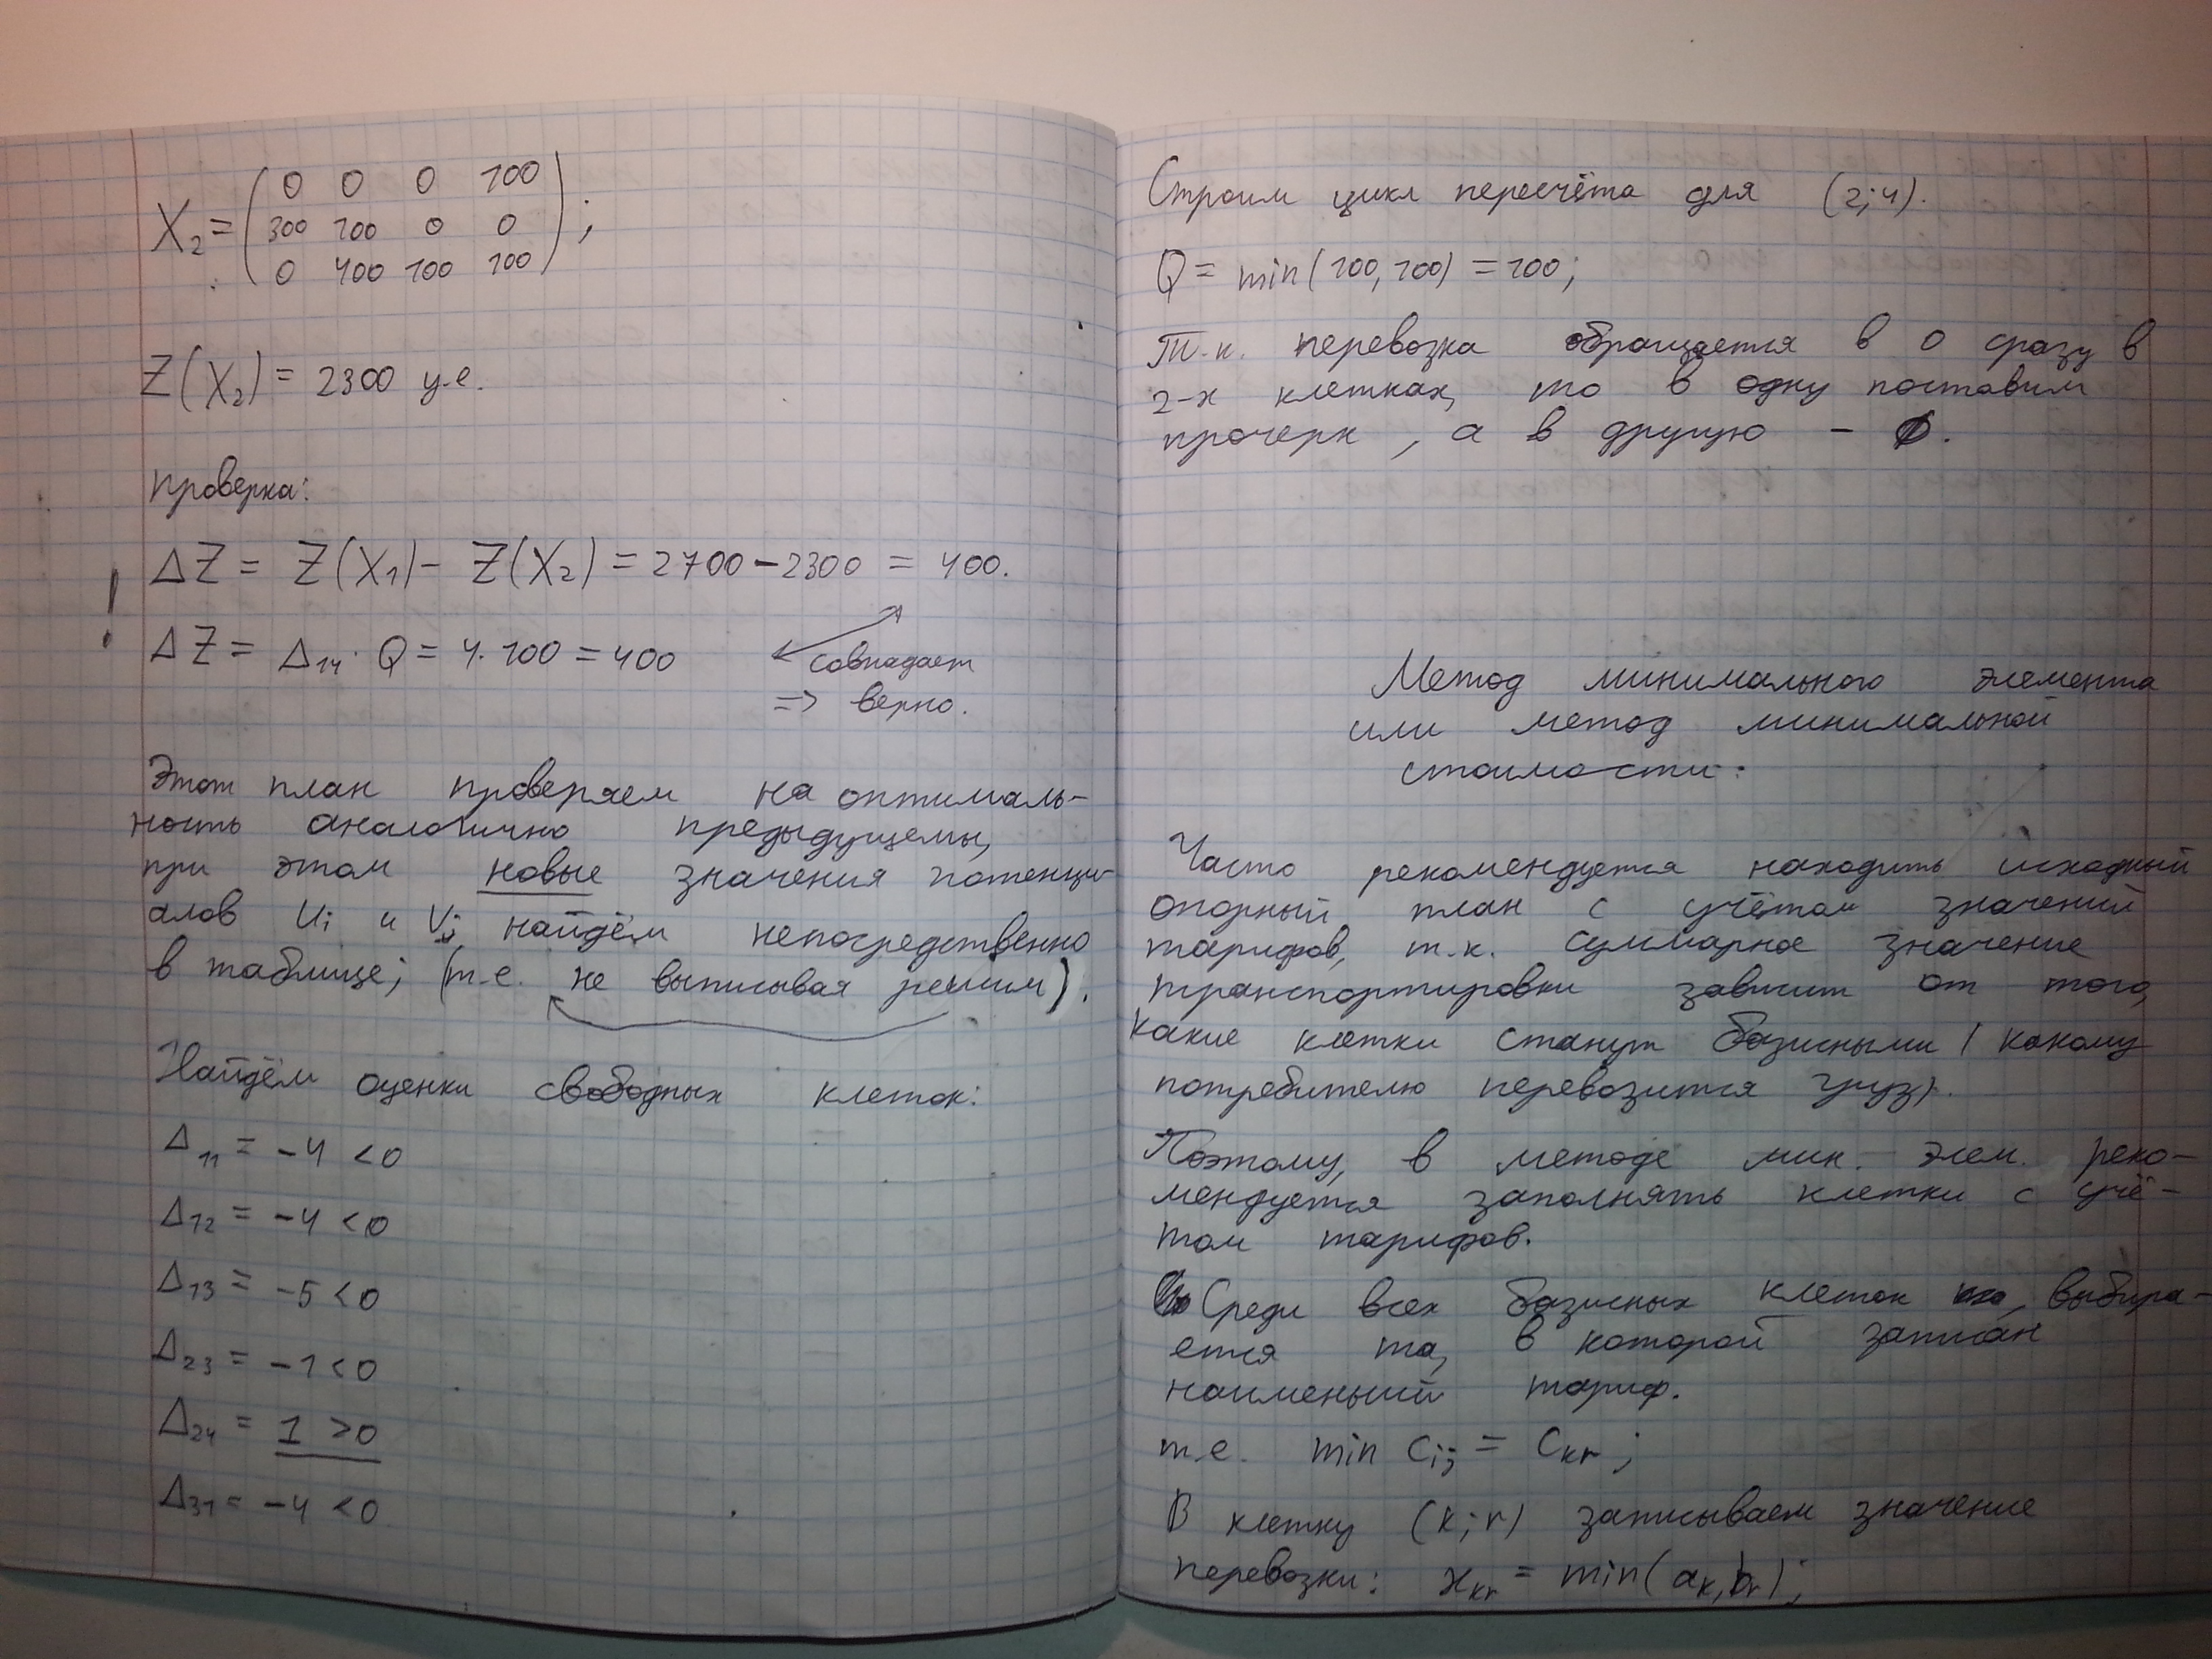 X₂ = ( 0 0 0 100
300 100 0 0
0 400 100 100 ) ;
Z(X₂) = 2300 у.е.
проверка:
! ΔZ = Z(X₁) - Z(X₂) = 2700 - 2300 = 400.
ΔZ = Δ₁₄ · Q = 4 · 100 = 400
совпадает
=> верно.
Этот план проверяем на оптималь-
ность аналогично предыдущему,
при этом новые значения потенци-
алов Ui и Vj найдём непосредственно
в таблице; (т.е. не выписывая решим).
Найдём оценки свободных клеток:
Δ₁₁ = -4 < 0
Δ₁₂ = -4 < 0
Δ₁₃ = -5 < 0
Δ₂₃ = -1 < 0
Δ₂₄ = 1 > 0
Δ₃₁ = -4 < 0
Строим цикл пересчёта для (2;4).
Q = min(100, 100) = 100;
Т.к. перевозка обращается в 0 сразу в
2-х клетках, то в одну поставим
прочерк, а в другую - 0.
Метод минимального элемента
или метод минимальной
стоимости:
Часто рекомендуется находить исходный
опорный план с учётом значений
тарифов, т.к. суммарное значение
транспортировки зависит от того,
какие клетки станут базисными (какому
потребителю перевозится груз).
Поэтому, в методе мин. элем. реко-
мендуется заполнять клетки с учё-
том тарифов.
Среди всех базисных клеток, выбира-
ется та, в которой записан
наименьший тариф.
т.е. min cij = ckr;
В клетку (k;r) записываем значение
перевозки: xkr = min(ak, br);